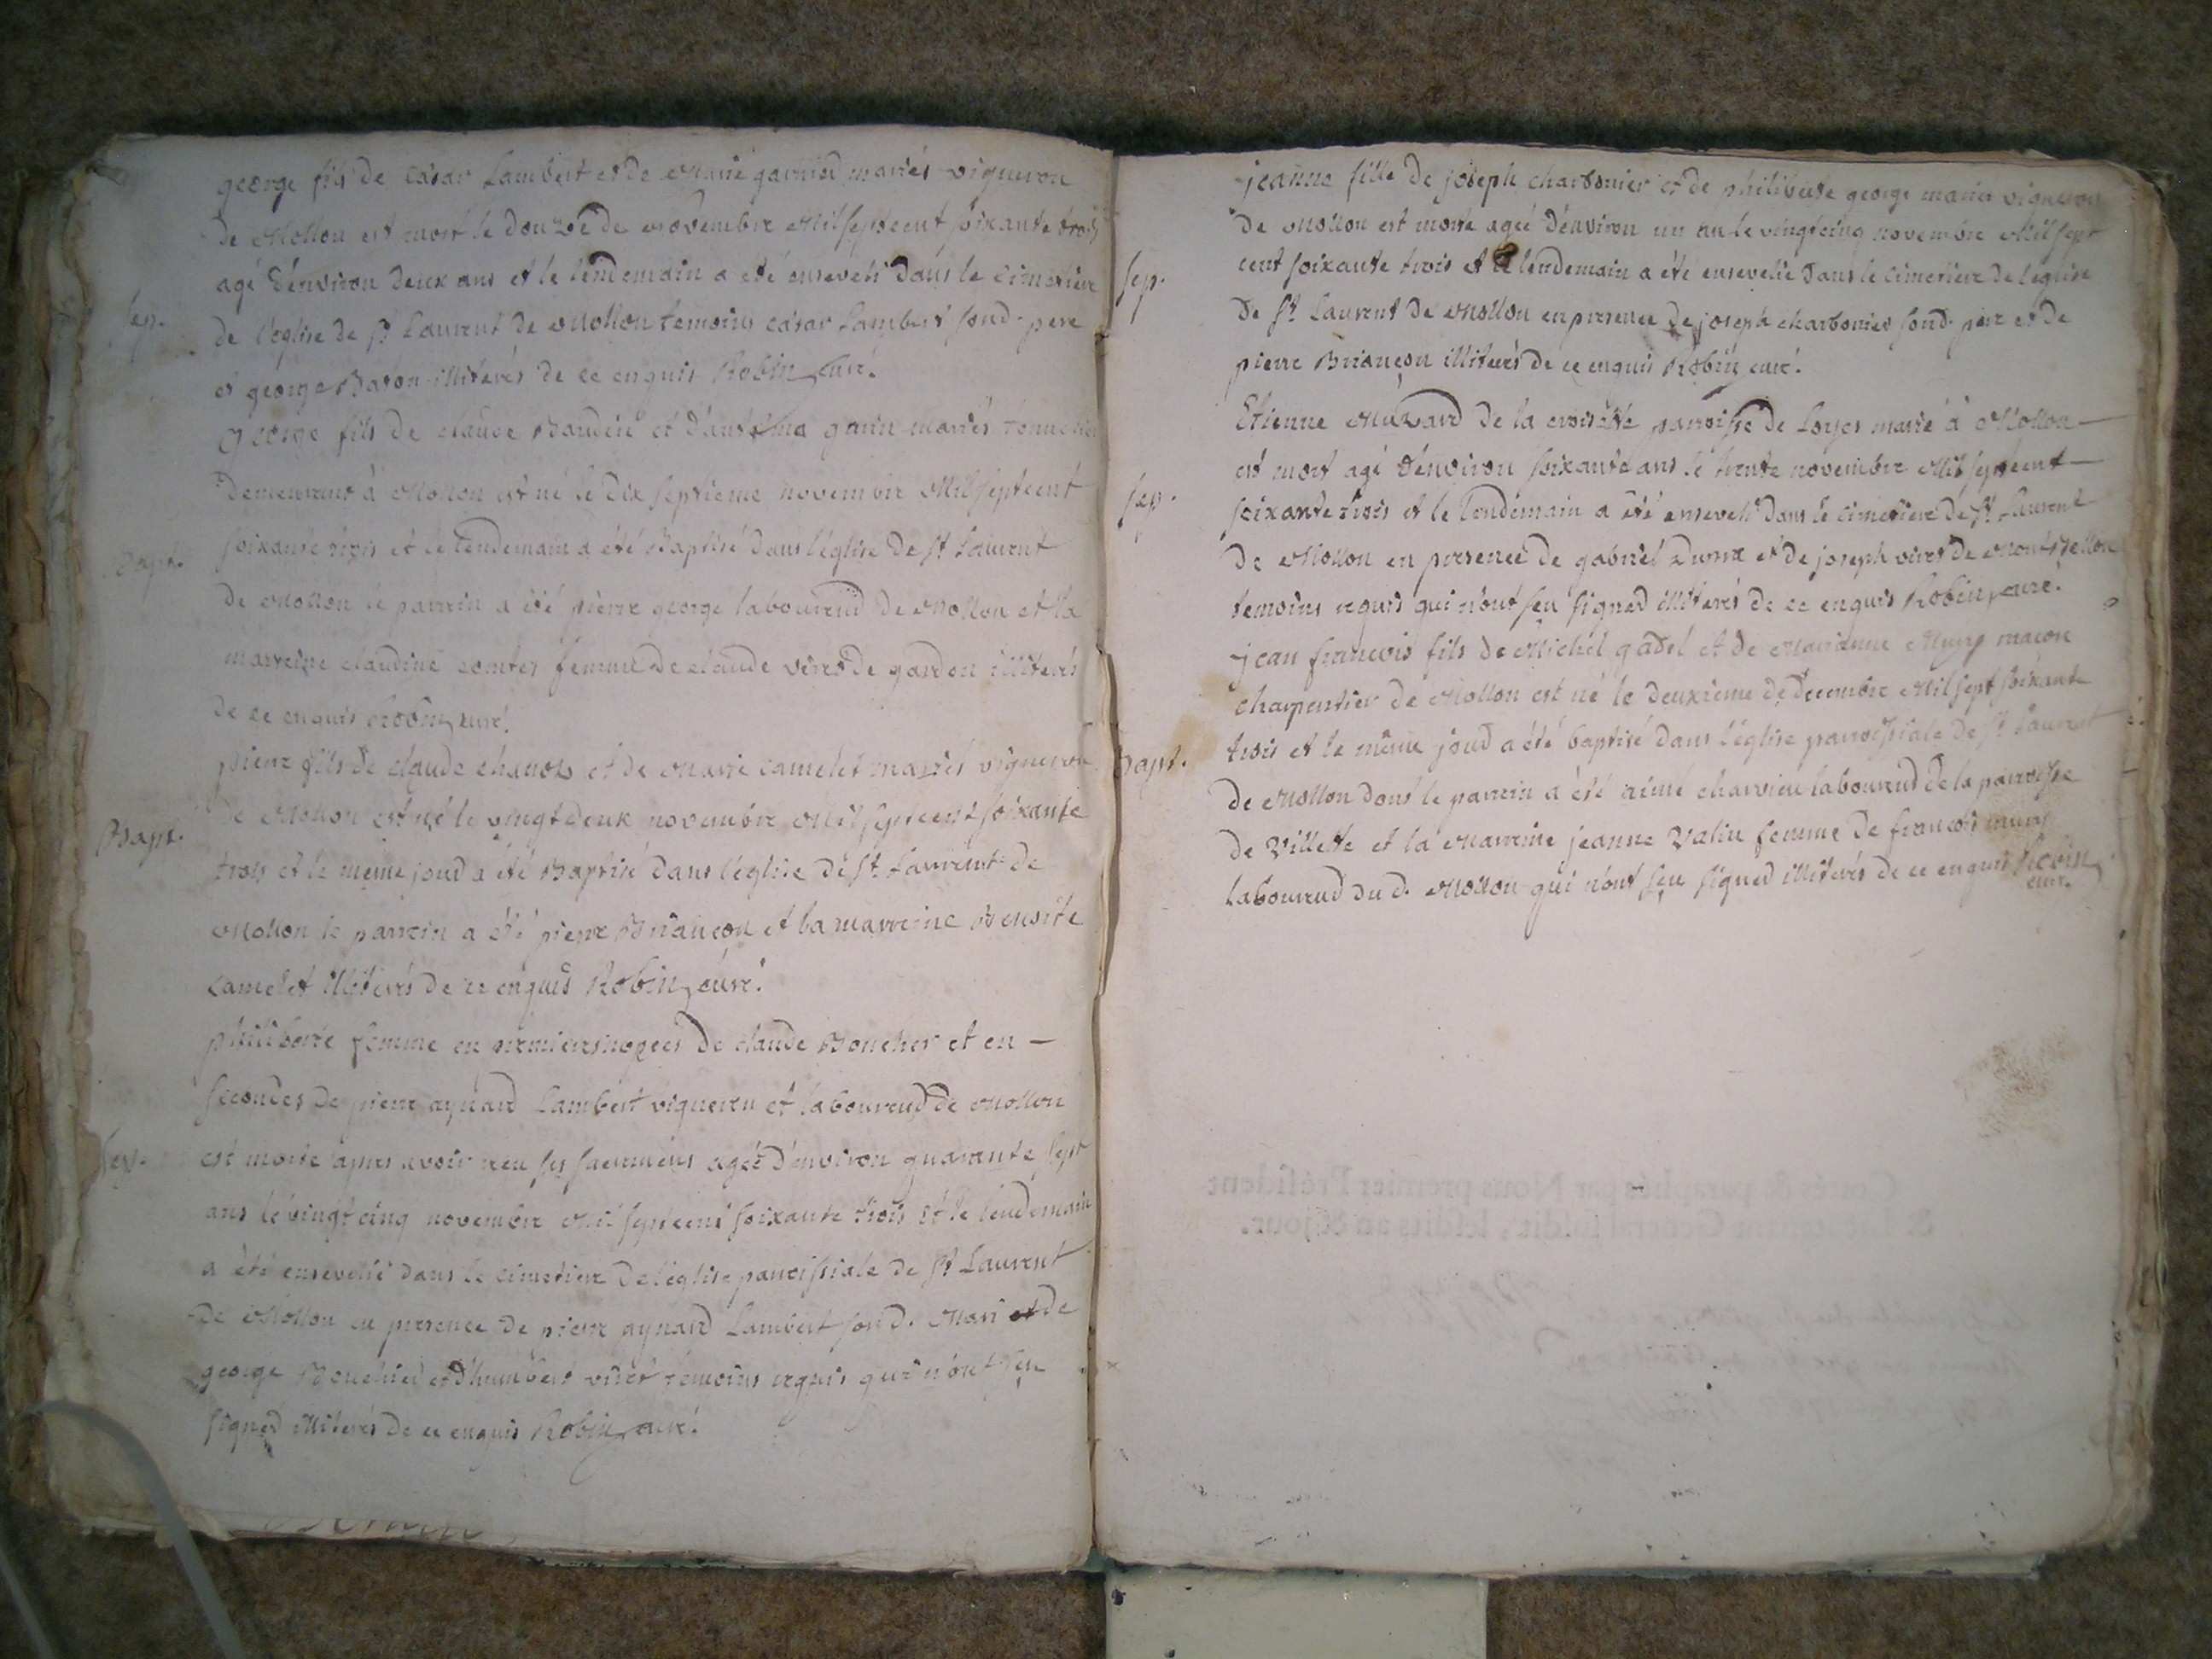 george fils de cæsar Lambert et de Marie garnied mariés vigneron
de Mollon est mort le douze de novembre Mil septcent soixante trois
agé d'environ deux ans et le lendemain a été enseveli dans le cimetiere
Sep.
de l'eglise de St Laurent de Mollon temoins cæsar Lambert sond. pere
et george Baton illiterés de ce enquis Robin curé.
george fils de claude Baudin et d'anthelma garin mariés
demeurant à Mollon est né le dix septieme novembre Mil septcent
Bapt.
soixante trois et le lendemain a été Baptisé dans l'église de St Laurent
de Mollon le parrein a été pierre george laboureud de Mollon et la
marreine claudine comtes femme de claude viret de gardon illiterés
de ce enquis Robin curé.
pierre fils de claude chanois et de Marie camelet mariés vigneron
de Mollon est né le vingt deux novembre Mil septcent soixante
Bapt.
trois et le même joud a été Baptisé dans l'église de St Laurent de
Mollon le parrein a été pierre Briançon et la marreine Benoite
camelet illiterés de ce enquis Robin curé.
philiberte femme en premieres nopces de claude Boucher et en —
secondes de pierre aynard Lambert vigneron et laboureud de Mollon
Sep.
est morte apres avoir reçu ses sacremens agée d'environ quarante sept
ans le vingt cinq novembre Mil septcent soixante trois et le lendemain
a été ensevelie dans le cimetiere de l'eglise parroissiale de St Laurent
de Mollon en presence de pierre aynard Lambert sond. Mari et de
george Bouchied et d'humbert viret temoins requis qui n'ont sçu
signed illiterés de ce enquis Robin curé.
jeanne fille de joseph charbonier et de philiberte george mariés vigneron
de Mollon est morte agée d'environ un an le vingtcinq novembre Mil sept
Sep.
cent soixante trois et le lendemain a été ensevelie dans le cimetiere de l'eglise
de St Laurent de Mollon en presence de joseph charbonier sond. pere et de
pierre Briançon illiterés de ce enquis Robin curé.
Etienne Muzard de la croisette parroisse de Loyes marié à Mollon —
est mort agé d'environ soixante ans le trente novembre Mil septcent —
Sep.
soixante trois et le lendemain a été enseveli dans le cimetiere de St Laurent
de Mollon en presence de gabriel et de joseph viret de Mollon
temoins requis qui n'ont sçu signed illiterés de ce enquis Robin curé.
jean francois fils de Michel gadel et de Marianne Mury maçon
charpentier de Mollon est né le deuxieme de decembre Mil sept soixante
Bapt.
trois et le même joud a été baptisé dans l'église parroissiale de St Laurent
de Mollon dont le parrein a été aimé charvieu laboureud de la parroisse
de Villette et la Marreine jeanne Valin femme de francois mury
laboureud du d. Mollon qui n'ont sçu signed illiterés de ce enquis Robin
curé.